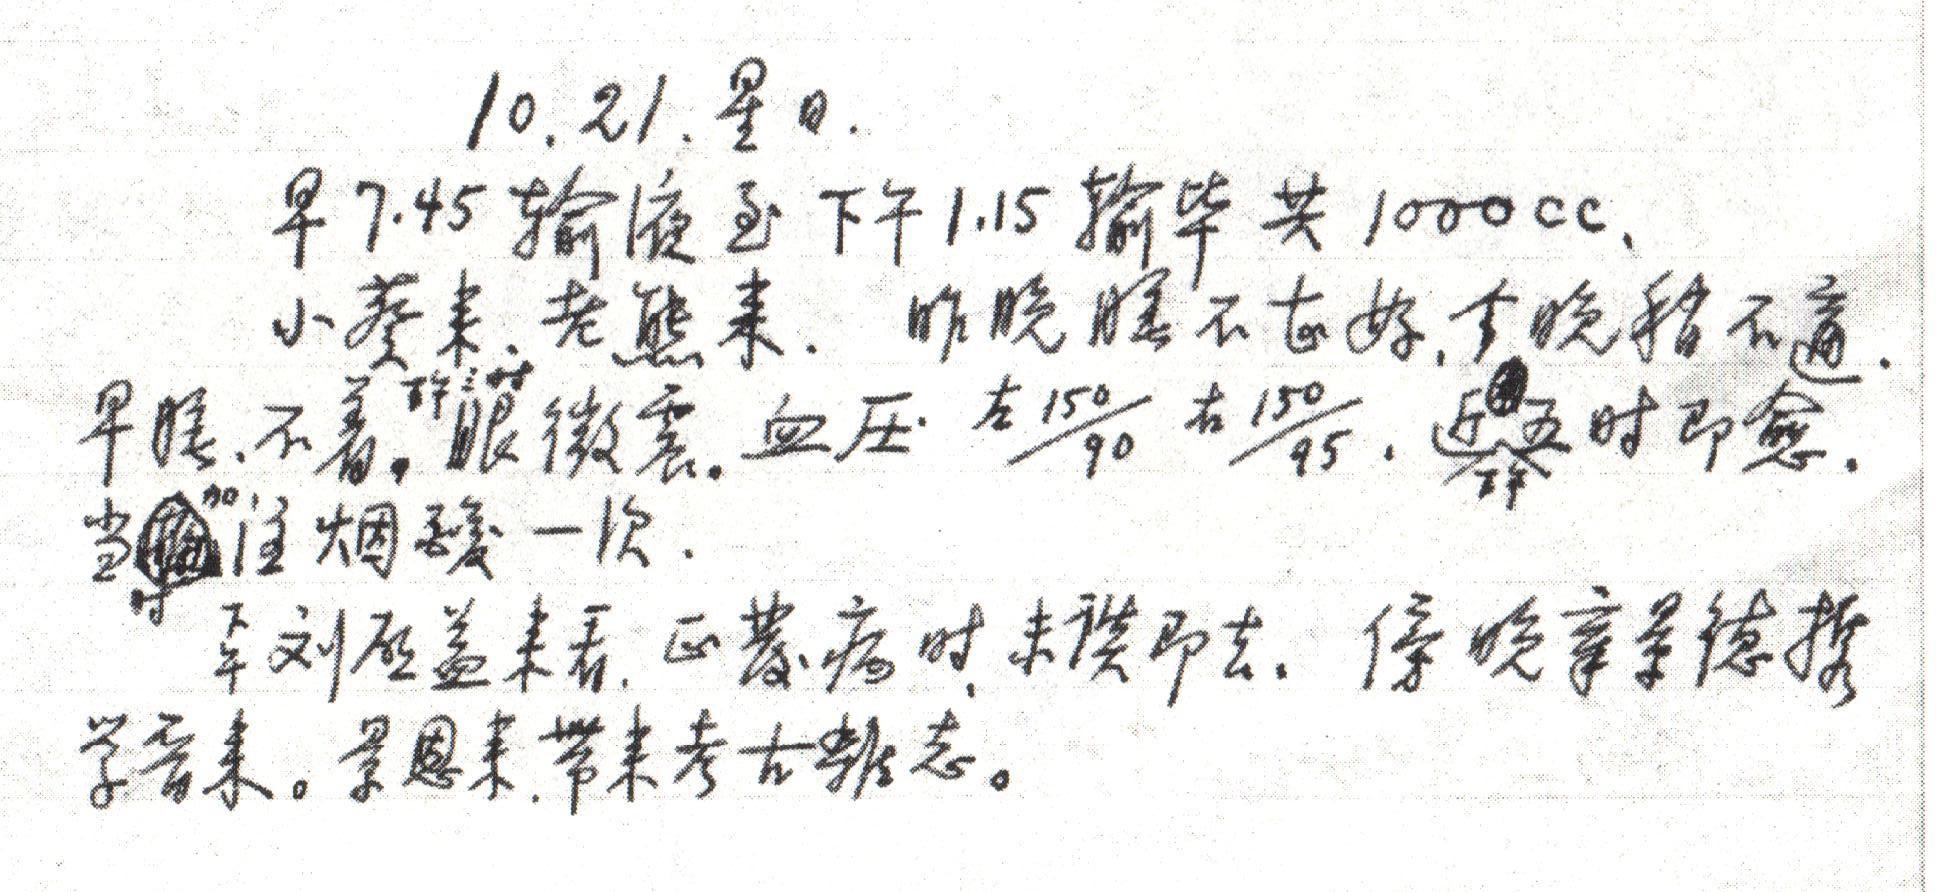 10.21.星日.
早7.45输液至下午1.15输毕共1000cc、
小葵来、老熊来. 昨晚睡不甚好,今晚稍不适.
早睡、不着。下午三时眼微震。血压.左150/90 右150/95.近下午五时即愈.
当时加注烟酸一次.
下午刘启益来看.正发病时,未谈即去.傍晚章景德携
学晋来。景恩来.带来考古雜志。